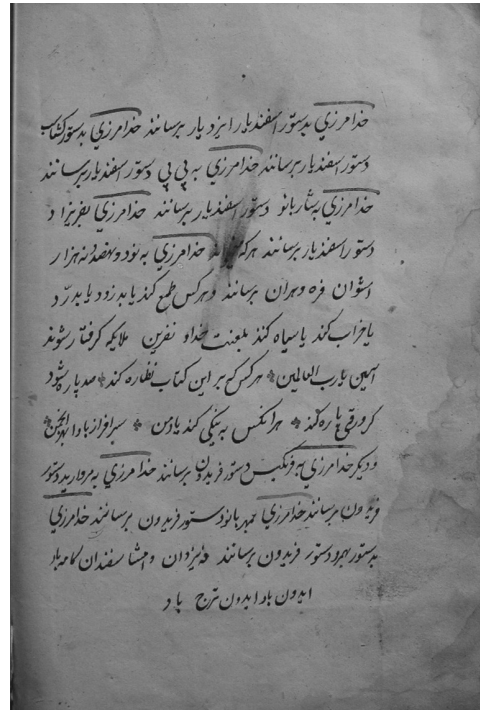 خدامرزی بدستور اسفندیار ایزدیار برسانند خدامرزی بدستور کشتاسب
دستور اسفندیار برسانند خدامرزی به پی پی دستور اسفندیار برسانند
خدامرزی به شاربانو دستور اسفندیار برسانند خدامرزی
دستور اسفندیار برسانند هرکه خدامرزی به نود و نهصد و نه هزار
اشوان فره وهران برسانند و هرکس طمع کند یا بدزدد یا بدرد
یا خراب کند یا سیاه کند بلعنت خدا و نفرین ملایکه گرفتار شوند
امین یارب العالمین هرکس که بر این کتاب نظاره کند صد پاره شود
کر ورقی پاره کند هر انکس به نیکی کند یاد من سرافراز باد
و دیگر خدامرزی به فرنکیس دستور فریدون برسانند خدامرزی به مروارید دستور
فریدون برسانند خدامرزی مهربانو دستور فریدون برسانند خدامرزی
بدستور بهرو دستور فریدون برسانند و امشاسفندان کامه باد
ایدون باد ایدون ترج باد